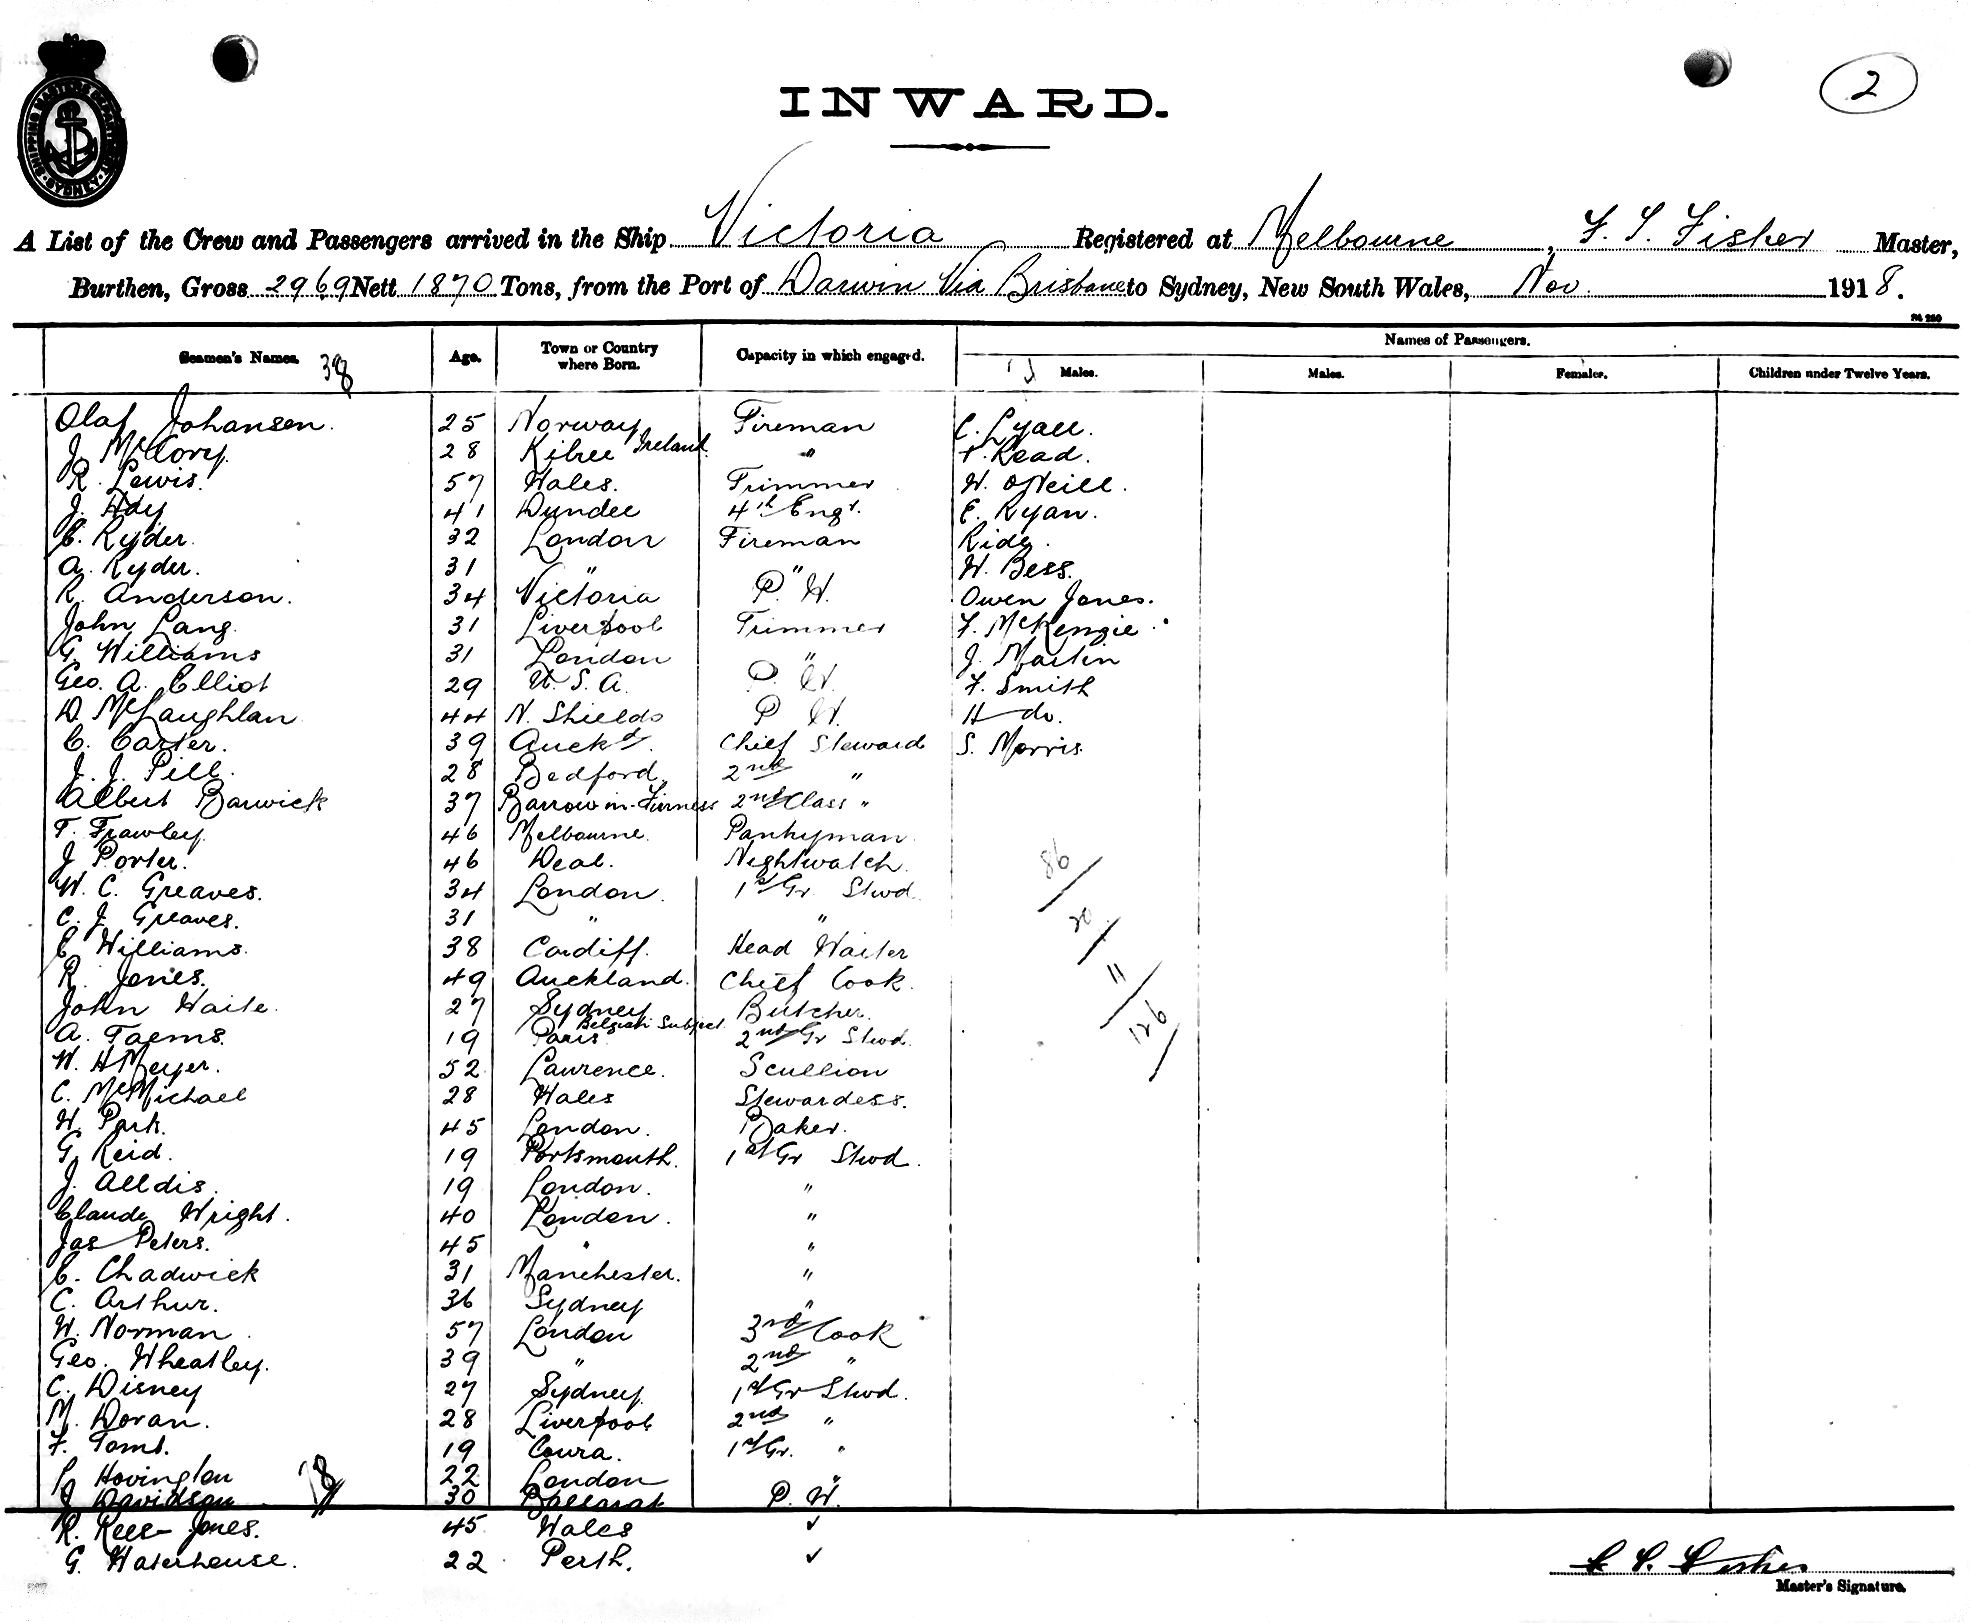 SHIPPING MASTERS DEPARTMENT SYDNEY
2
INWARD.
A List of the Crew and Passengers arrived in the Ship Victoria Registered at Melbourne, F. S. Fisher Master,
Burthen, Gross 2969 Nett 1870 Tons, from the Port of Darwin Via Brisbane to Sydney, New South Wales, Nov. 1918.
Seamen's Names. 38 Age. Town or Country where Born. Capacity in which engaged. Names of Passengers.
Males. Males. Females. Children under Twelve Years.
Olaf Johansen. 25 Norway Fireman C. Lyall.
J. McCory. 28 Kilree Ireland " Read.
R. Lewis. 57 Wales. Trimmer W. O'Neill.
J. Ady 41 Dundee 4th Engr. E. Ryan.
E. Ryder. 32 London Fireman Ride.
A. Ryder. 31 " " W. Bess.
R. Anderson. 34 Victoria P. W. Owen Jones.
John Lang. 31 Liverpool Trimmer F. McKenzie.
G. Williams 31 London " J. Martin
Geo. A. Elliot 29 U. S. A. P. W. F. Smith
D. McLaughlan 44 N. Shields P W. H do.
C. Carter. 39 Auckd. Chief Steward S. Morris
J. J. Pill. 28 Bedford 2nd "
Albert Barwick 37 Barrow in Furness 2nd Class "
T. Frawley. 46 Melbourne. Pantryman.
J Porter. 46 Deal. Nightwatch.
W. C. Greaves. 34 London. 1st Gr. Stwd.
C. J. Greaves. 31 " "
E Williams. 38 Cardiff. Head Waiter
R. Jones. 49 Auckland. Chief Cook.
John Waite. 27 Sydney Butcher.
A. Taems. 19 Paris Belgian Subject 2nd Gr Stwd.
W. H Meyer. 52 Lawrence. Scullion
C. McMichael 28 Wales Stewardess.
W. Park. 45 London. Baker.
G. Reid. 19 Portsmouth. 1st Gr Stwd.
J. Alldis. 19 London. "
Claude Wright. 40 London. "
Jas Peters. 45 " "
E. Chadwick 31 Manchester. "
C. Arthur. 36 Sydney "
W. Norman 57 London 3rd Cook
Geo. Wheatley. 39 " 2nd "
C. Disney 27 Sydney. 1st Gr Stwd.
M. Doran. 28 Liverpool 2nd "
F. Tomt. 19 Cowra. 1st Gr. "
Hovington 22 London "
J Davidson 30 Ballarat P. W.
R. Rees-Jones. 45 Wales ✓
G. Waterhouse. 22 Perth. ✓
86
20
11
126
Master's Signature.